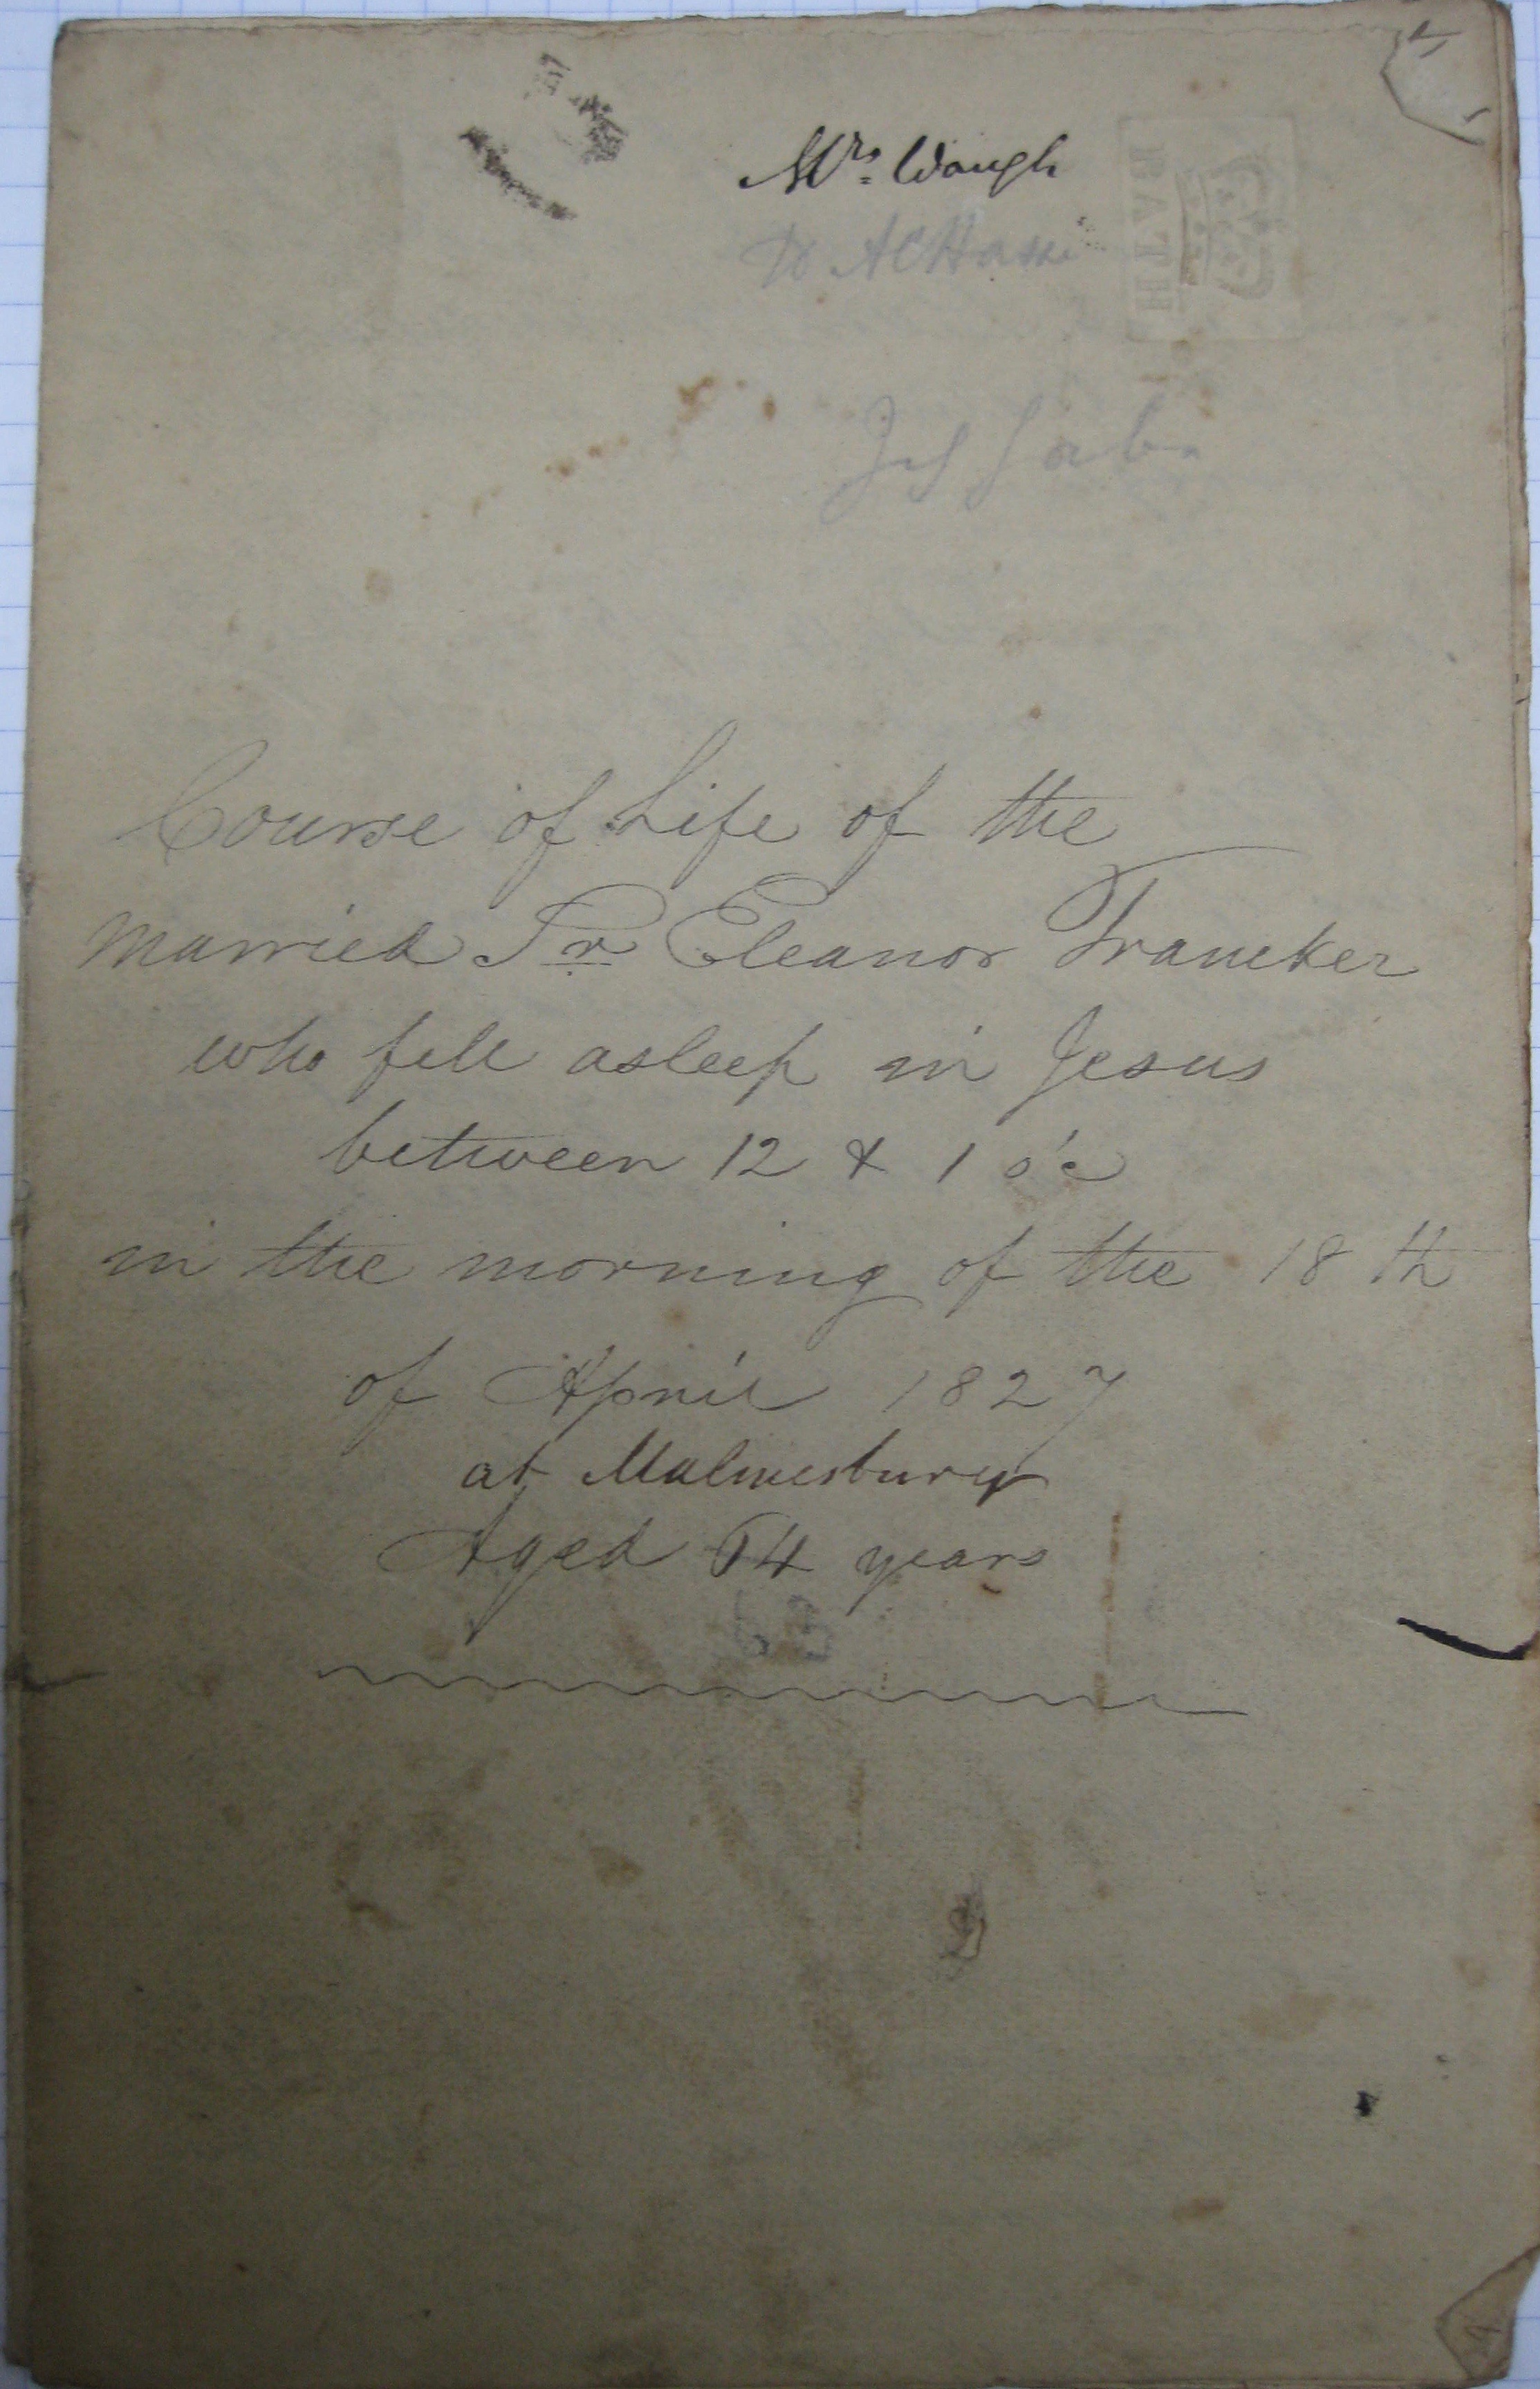 Mrs. Waugh
BATH
Course of Life of the
married Sr Eleanor Traneker
who fell asleep in Jesus
between 12 & 1 o'c
in the morning of the 18th
of April 1827
at Malmesbury
Aged 54 years
53